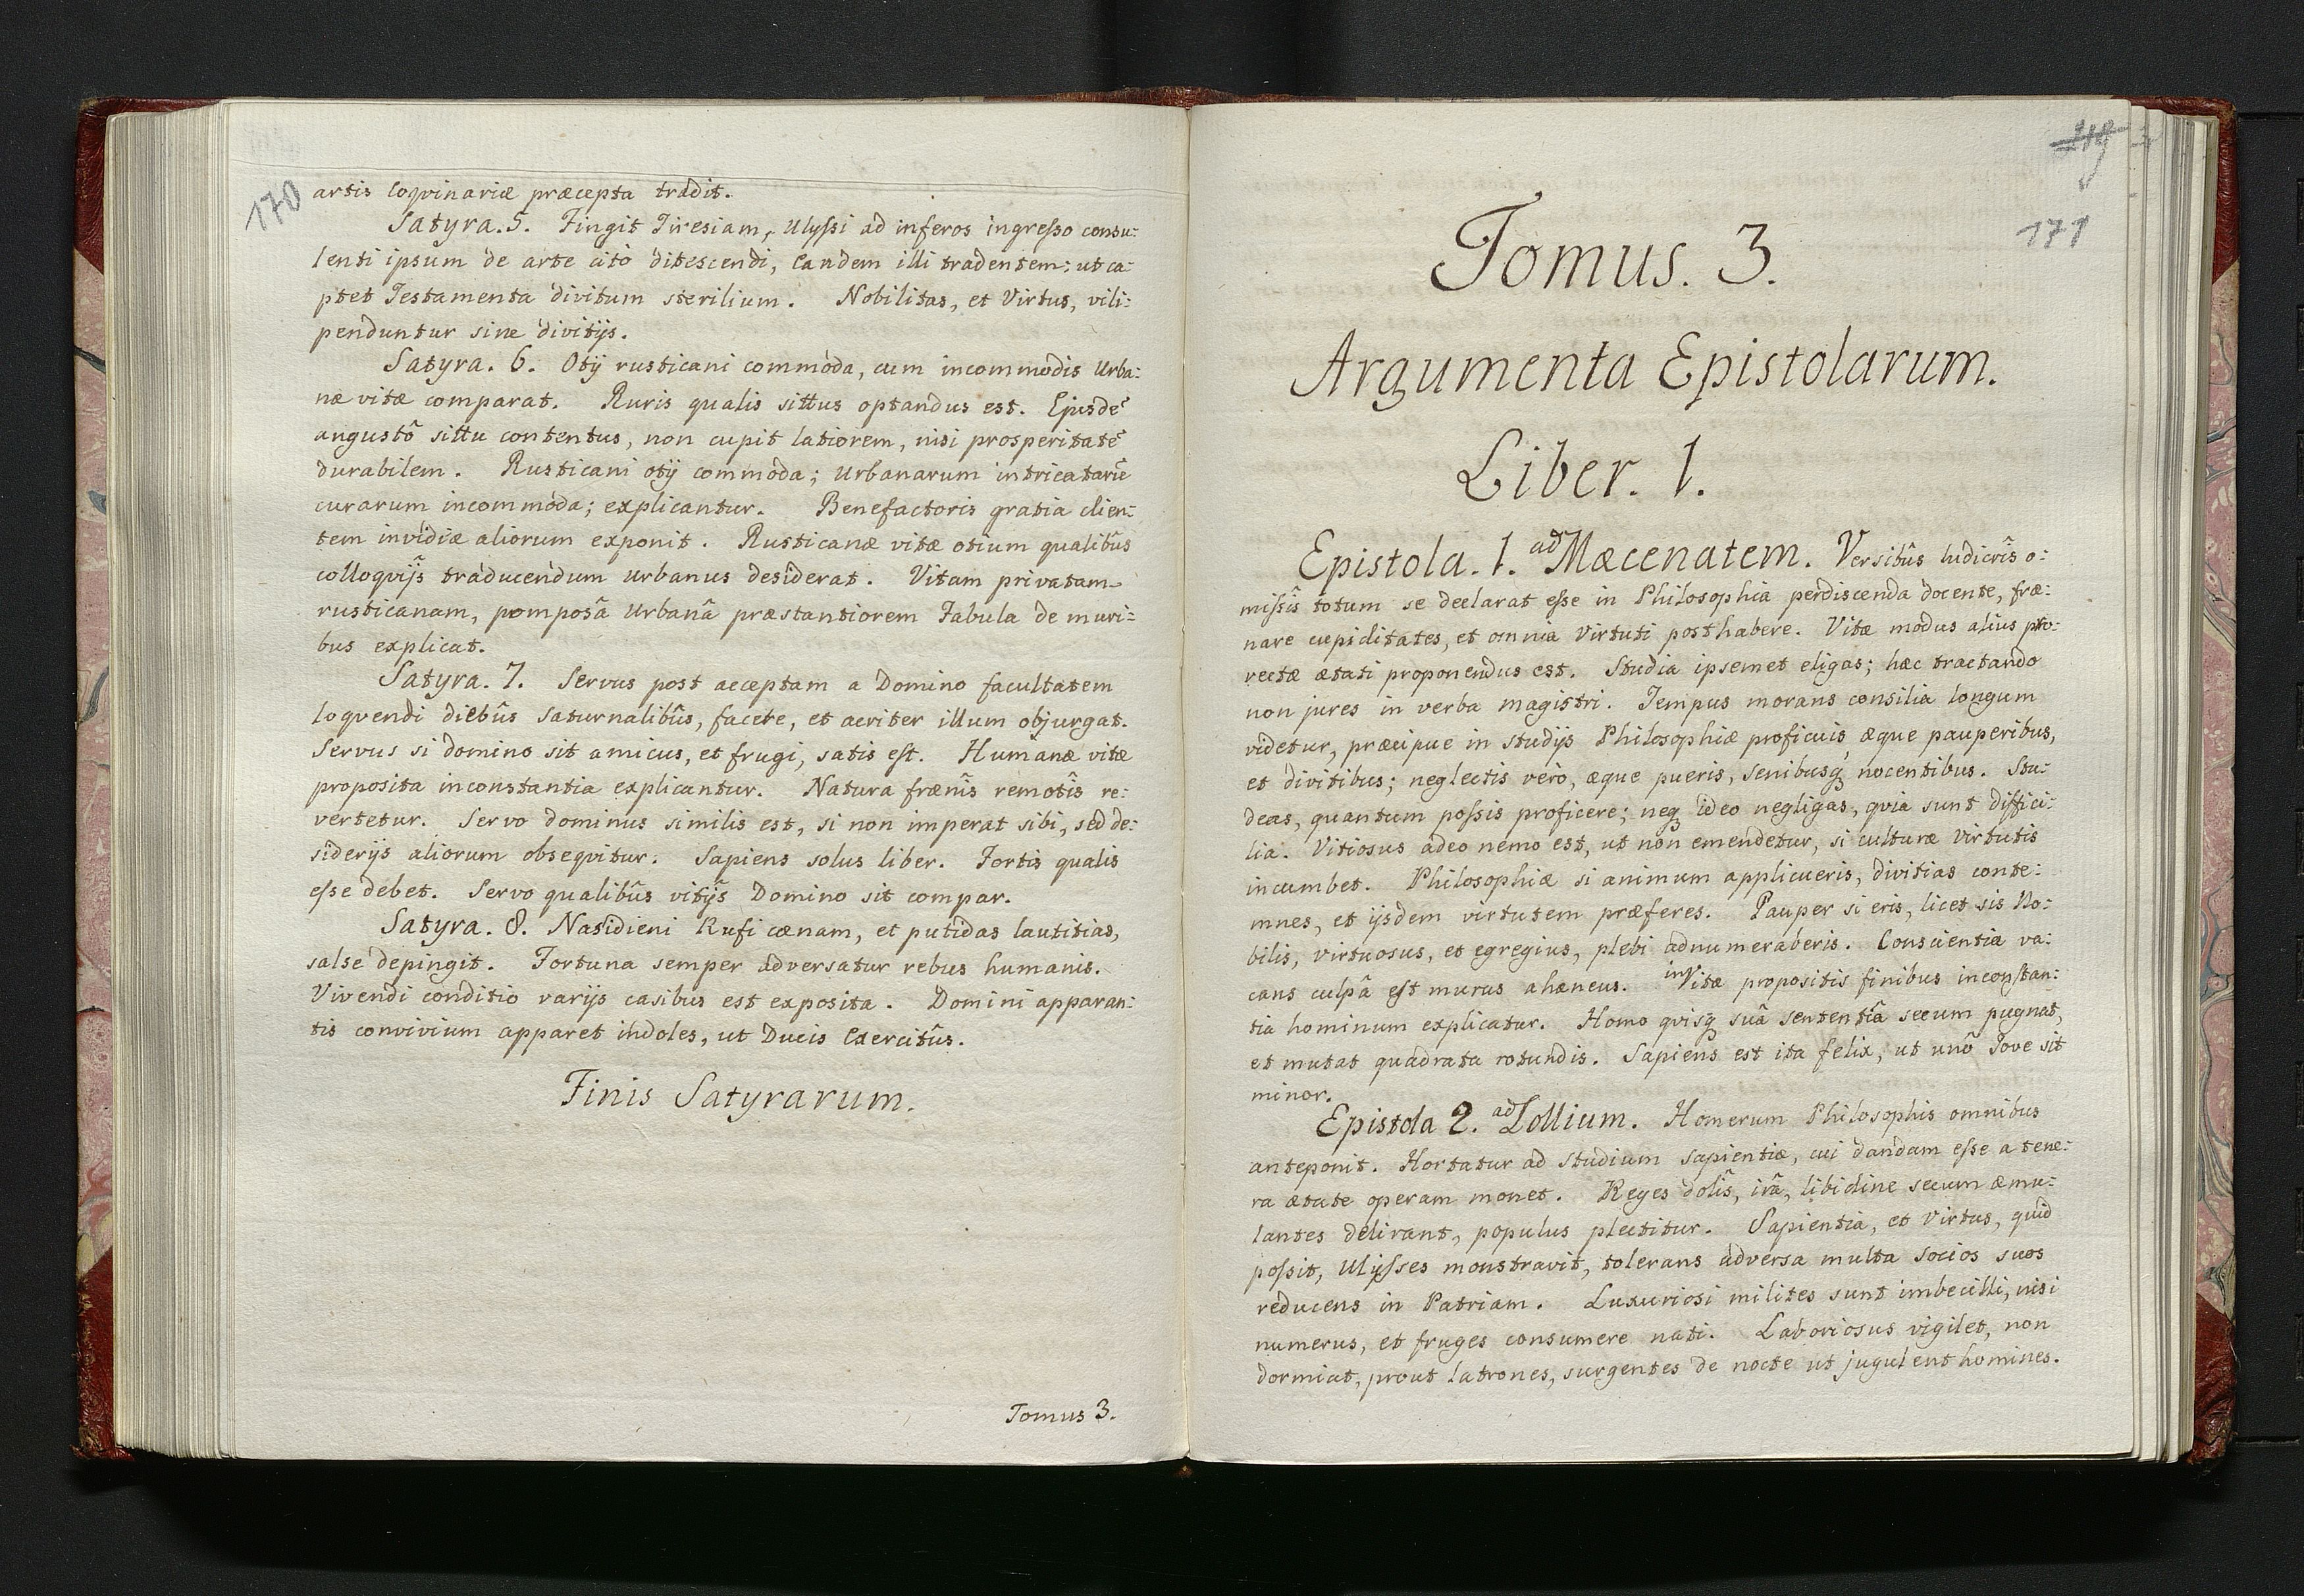 170
artis coqvinariæ præcepta tradit.
Satyra. 5. Fingit Tiresiam, Ulyssi ad inferos ingresso consu:
lenti ipsum de arte citò ditescendi, eandem illi tradentem: ut ca:
ptet Testamenta divitum sterilium. Nobilitas, et Virtus, vili:
penduntur sine divitijs.
Satyra. 6. Otij rusticani commoda, cum incommodis Urba:
næ vitæ comparat. Ruris qualis sittus optandus est. Ejusdē
angustô sittu contentus, non cupit latiorem, nisi prosperitatē
durabilem. Rusticani otij commoda; Urbanarum intricatarū
curarum incommoda; explicantur. Benefactoris gratia clien:
tem invidiæ aliorum exponit. Rusticanæ vitæ otium qualibûs
colloqvijs traducendum Urbanus desiderat. Vitam privatam
rusticanam, pomposâ Urbanâ præstantiorem Fabula de muri:
bus explicat.
Satyra. 7. Servus post acceptam a Domino facultatem
loqvendi diebûs Saturnalibûs, facete, et acriter illum objurgat.
Servus si domino sit amicus, et frugi, satis est. Humanæ vitæ
proposita inconstantia explicantur. Natura frænîs remotîs re:
vertetur. Servo dominus similis est, si non imperat sibi, sed de:
siderijs aliorum obseqvitur. Sapiens solus liber. Fortis qualis
esse debet. Servo qualibûs vitijs Domino sit compar.
Satyra. 8. Nasidieni Rufi cænam, et putidas lautitias,
salse depingit. Fortuna semper adversatur rebus humanis.
Vivendi conditio varijs casibus est exposita. Domini apparan:
tis convivium apparet indoles, ut Ducis Exercitûs.
Finis Satyrarum.
Tomus 3.
171
Tomus. 3.
Argumenta Epistolarum.
Liber. 1.
Epistola. 1. ad Mæcenatem. Versibûs ludicrîs o:
missîs totum se declarat esse in Philosophia perdiscenda docente, fræ:
nare cupiditates, et omnia Virtuti posthabere. Vitæ modus alius pro:
vectæ ætati proponendus est. Studia ipsemet eligas; hæc tractando
non jures in verba magistri. Tempus morans consilia longum
videtur, præcipue in studijs Philosophiæ proficuis, æque pauperibus,
et divitibus; neglectis verò, æque pueris, senibusq nocentibus. Stu:
deas, quantum possis proficere; neq ideo negligas, qvia sunt diffici:
lia. Vitiosus adeo nemo est, ut non emendetur, si culturæ virtutis
incumbet. Philosophiæ si animum applicueris, divitias conte:
mnes, et ijsdem virtutem præferes. Pauper si eris, licet sis No:
bilis, virtuosus, et egregius, plebi adnumeraberis. Conscientia va:
cans culpâ est murus ahæneus. in Vitæ propositis finibus inconstan:
tia hominum explicatur. Homo qvisq suâ sententiâ secum pugnat,
et mutat quadrata rotundis. Sapiens est ita felix, ut unô Jove sit
minor.
Epistola 2. ad Lollium. Homerum Philosophis omnibus
anteponit. Hortatur ad studium sapientiæ, cui dandam esse a tene:
ra ætate operam monet. Reges dolîs, irâ, libidine secum æmu:
lantes delirant, populus plectitur. Sapientia, et Virtus, quid
possit, Ulysses monstravit, tolerans adversa multa socios suos
reducens in Patriam. Luxuriosi milites sunt imbecilli, nisi
numerus, et fruges consumere nati. Laboriosus vigilet, non
dormiat, prout latrones, surgentes de nocte ut jugulent homines.